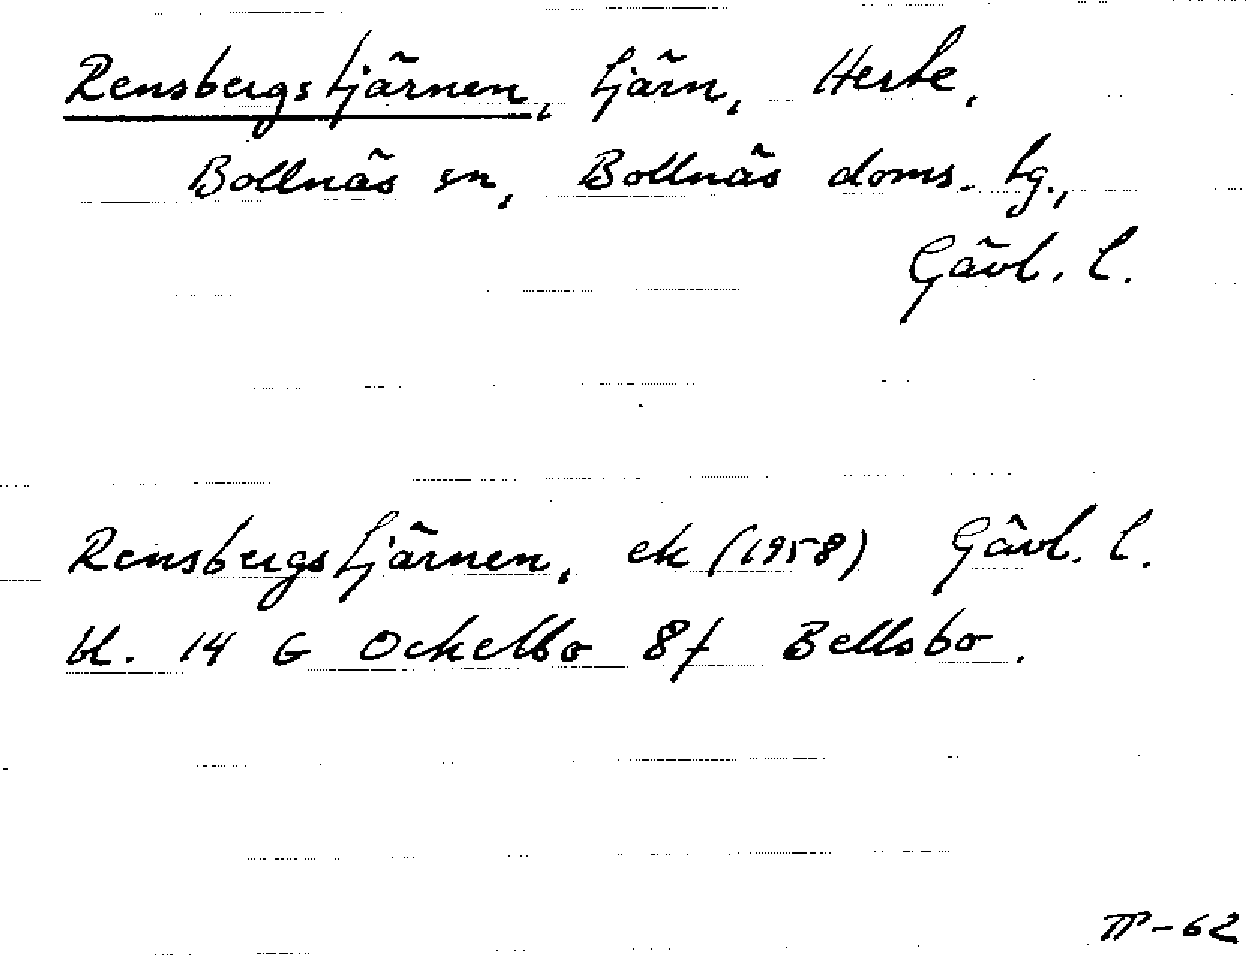 Rensbergstjärnen, tjärn, Herte,
Bollnäs sn, Bollnäs doms. tg.,
Gävl. l.
Rensbergstjärnen, ek (1958) Gävl. l.
bl. 14 G Ockelbo 8f Bellsbo.
TP-62